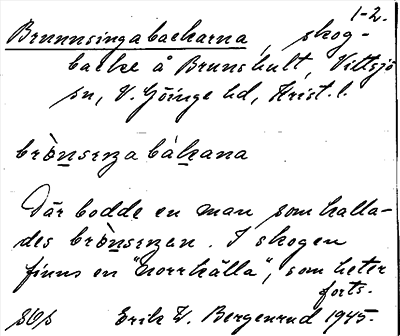 1-2.
Brunnsingabackarna, skog-
backe å Brunshult, Vittsjö
sn, V. Göinge hd, Krist. l.
brònsınga bàkana
Där bodde en man som kalla-
des brònsıngen. I skogen
finns en "norrkälla", som heter
forts.
SOf Erik W. Bergenrud 1945.